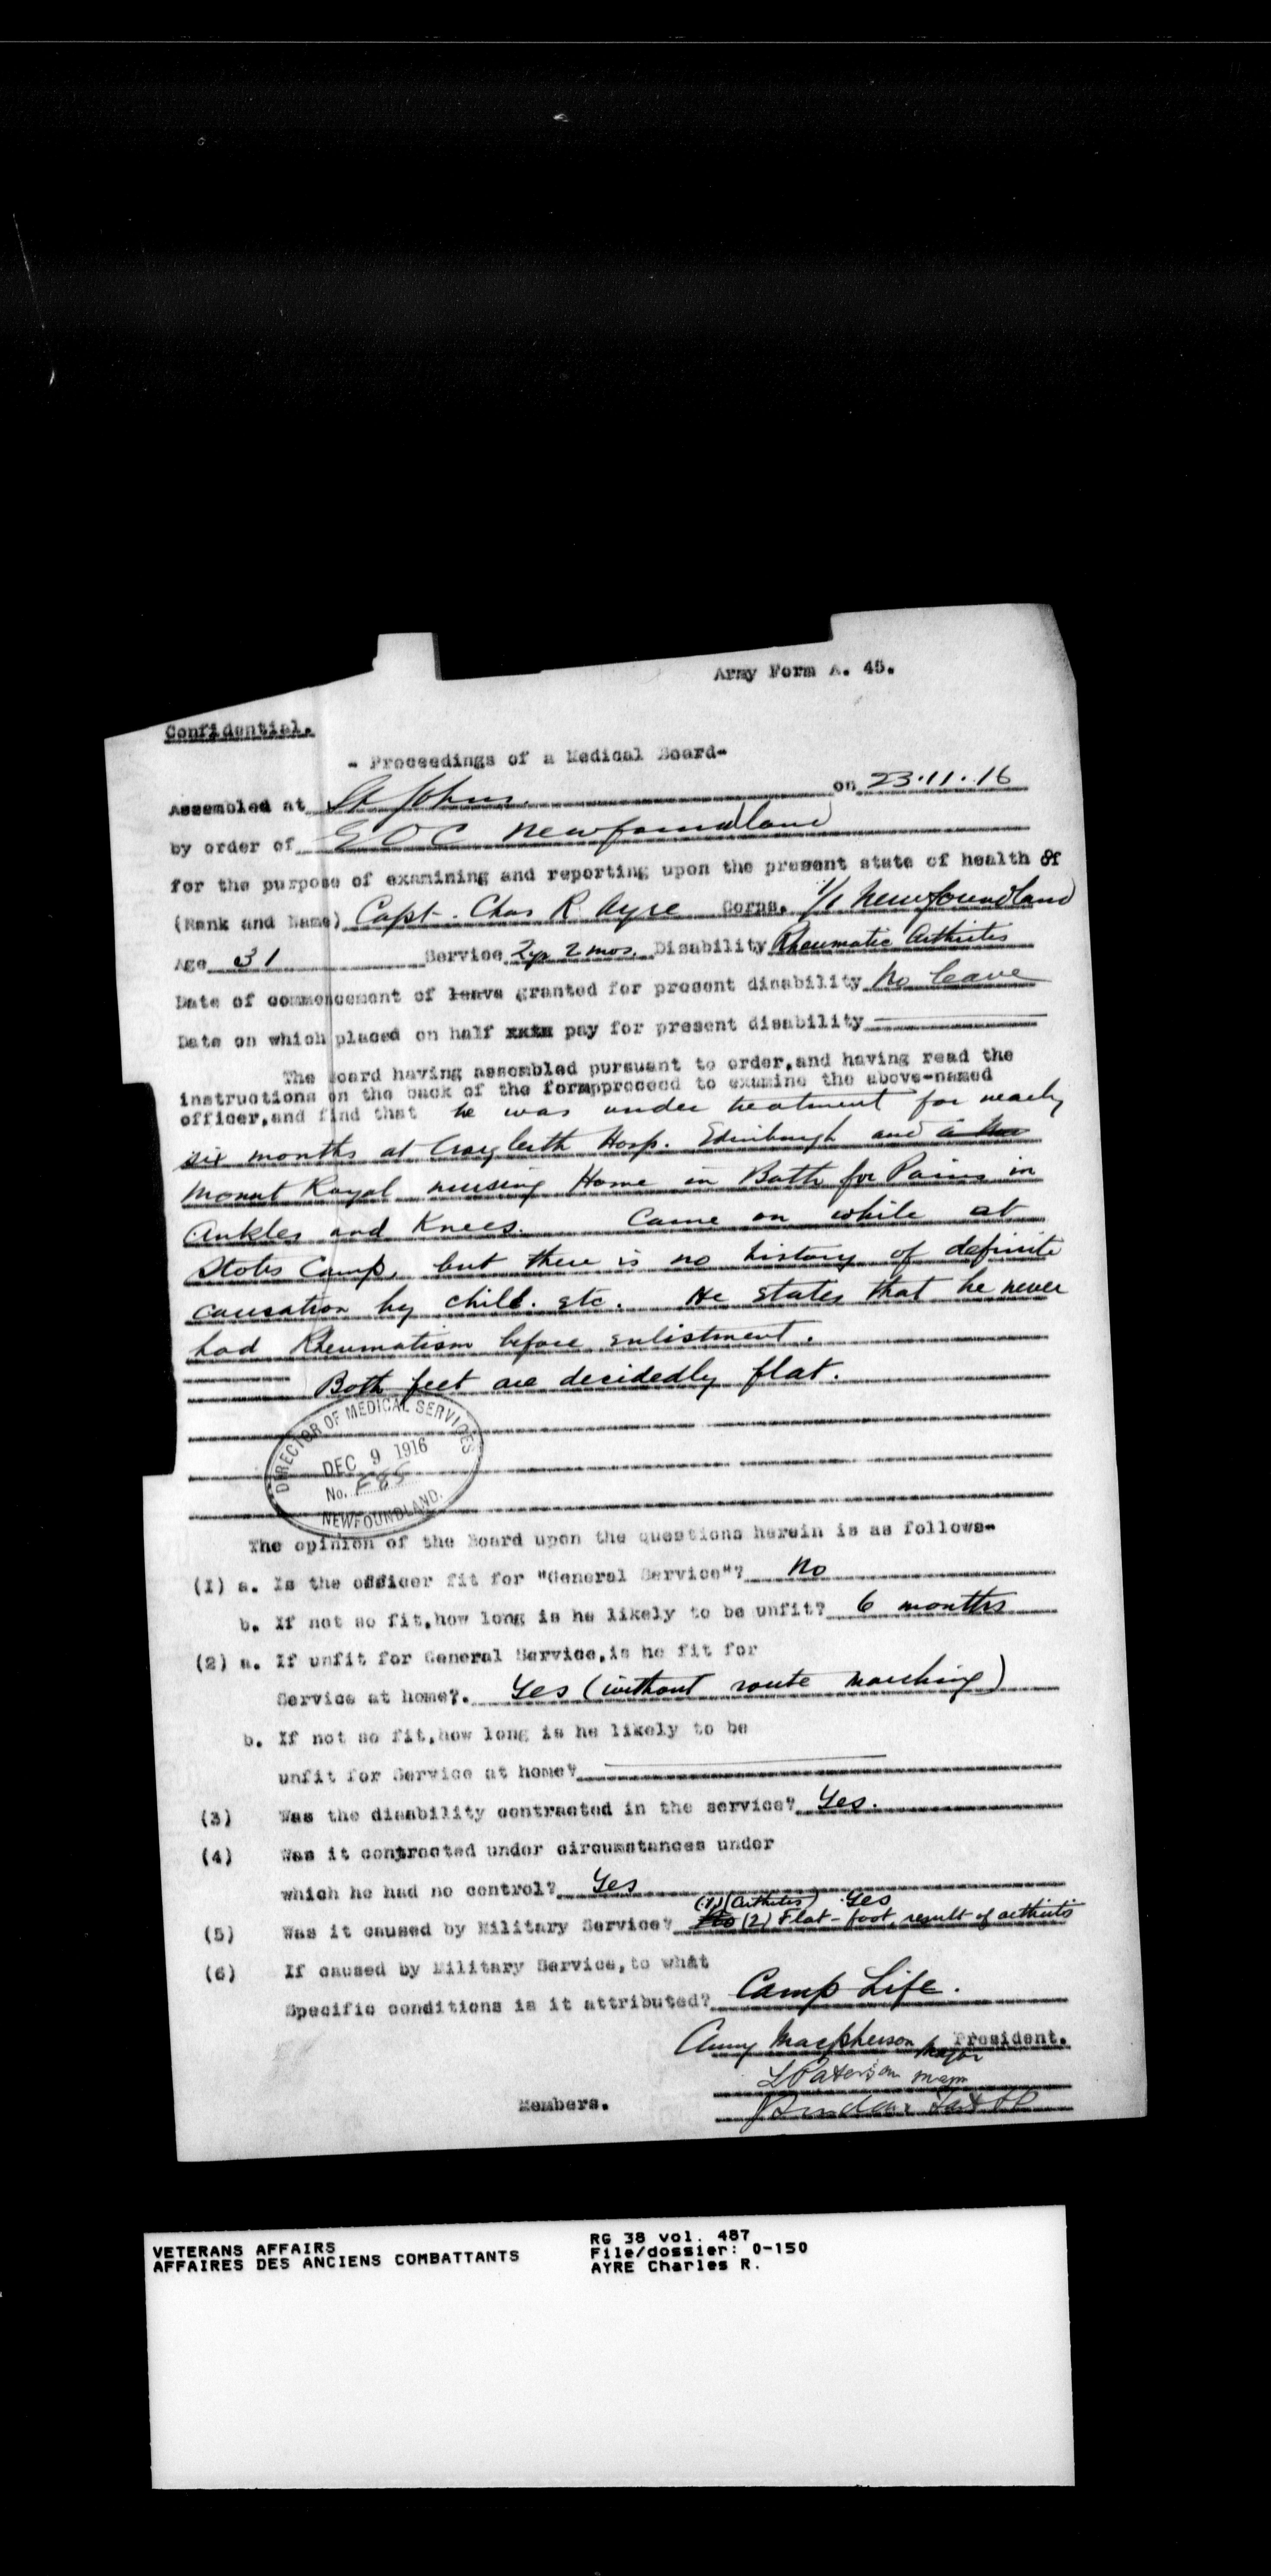 Army Form A. 45.
Confidential.
- Proceedings of a Medical Board-
Assembled at St Johns. on 23.11.16
by order of G O C Newfoundland
for the purpose of examining and reporting upon the present state of health of
(Rank and Name) Capt. Chas R Ayre Corps. 1/1 Newfoundland
Age 31 Service 2yr 2 mos. Disability Rheumatic Arthritis
Date of commencement of leave granted for present disability No leave
Date on which placed on half pay for present disability
The Board having assembled pursuant to order,and having read the
instructions on the back of the formpproceed to examine the above-named
officer,and find that he was under treatment for nearly
six months at Craigleith Hosp. Edinburgh and
Mount Royal nursing Home in Bath for Pains in
Ankles and Knees. Came on while at
Stobs Camp, but there is no history of definite
causation by chill. etc. He states that he never
had Rheumatism before enlistment.
Both feet are decidedly flat.
DIRECTOR OF MEDICAL SERVICES
DEC 9 1916
No. F85
NEWFOUNDLAND.
The opinion of the Board upon the questions herein is as follows-
(1) a. Is the officer fit for "General Service"? No
b. If not so fit,how long is he likely to be unfit? 6 months
(2) a. If unfit for General Service,is he fit for
Service at home?. Yes (without route marching)
b. If not so fit,how long is he likely to be
unfit for Service at home?
(3) Was the disability contracted in the service? Yes.
(4) Was it contracted under circumstances under
which he had no control? Yes
(1) (Arthritis) Yes
(5) Was it caused by Military Service? No (2) Flat-foot, result of arthritis
(6) If caused by Military Service,to what
Specific conditions is it attributed? Camp Life.
Cluny Macpherson Major President.
L Paterson Major
Members.
VETERANS AFFAIRS RG 38 vol. 487
AFFAIRES DES ANCIENS COMBATTANTS File/dossier: 0-150
AYRE Charles R.